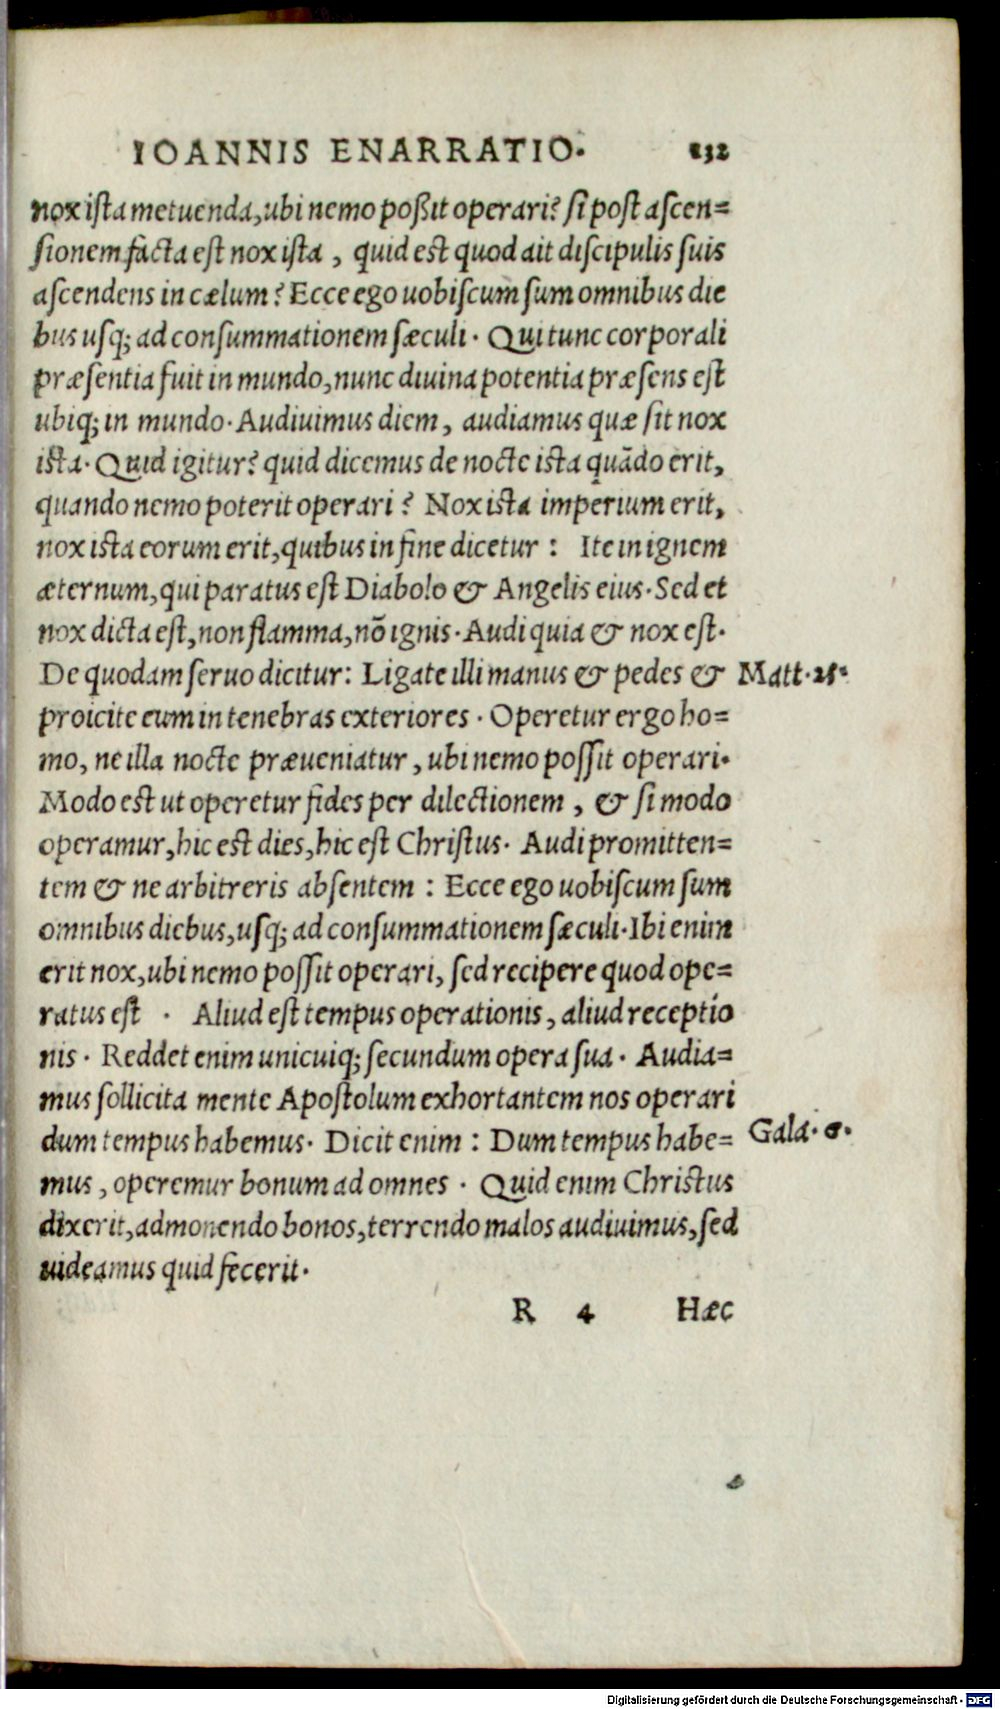 IOANNIS ENARRATIO. 132
nox ista metuenda, ubi nemo poßit operari? si post ascen=
sionem facta est nox ista, quid est quod ait discipulis suis
ascendens in cælum? Ecce ego uobiscum sum omnibus die
bus usq; ad consummationem sæculi. Qui tunc corporali
præsentia fuit in mundo, nunc diuina potentia præsens est
ubiq; in mundo. Audiuimus diem, audiamus quæ sit nox
ista. Quid igitur? quid dicemus de nocte ista quādo erit,
quando nemo poterit operari? Nox ista imperium erit,
nox ista eorum erit, quibus in fine dicetur: Ite in ignem
æternum, qui paratus est Diabolo & Angelis eius. Sed et
nox dicta est, non flamma, nō ignis. Audi quia & nox est.
De quodam seruo dicitur: Ligate illi manus & pedes & Matt. 25.
proicite eum in tenebras exteriores. Operetur ergo ho=
mo, ne illa nocte præueniatur, ubi nemo possit operari.
Modo est ut operetur fides per dilectionem, & si modo
operamur, hic est dies, hic est Christus. Audi promitten=
tem & ne arbitreris absentem: Ecce ego uobiscum sum
omnibus diebus, usq; ad consummationem sæculi. Ibi enim
erit nox, ubi nemo possit operari, sed recipere quod ope=
ratus est. Aliud est tempus operationis, aliud receptio
nis. Reddet enim unicuiq; secundum opera sua. Audia=
mus sollicita mente Apostolum exhortantem nos operari
dum tempus habemus. Dicit enim: Dum tempus habe= Gala. 6.
mus, operemur bonum ad omnes. Quid enim Christus
dixerit, admonendo bonos, terrendo malos audiuimus, sed
uideamus quid fecerit.
R 4 Hæc
Digitalisierung gefördert durch die Deutsche Forschungsgemeinschaft - DFG